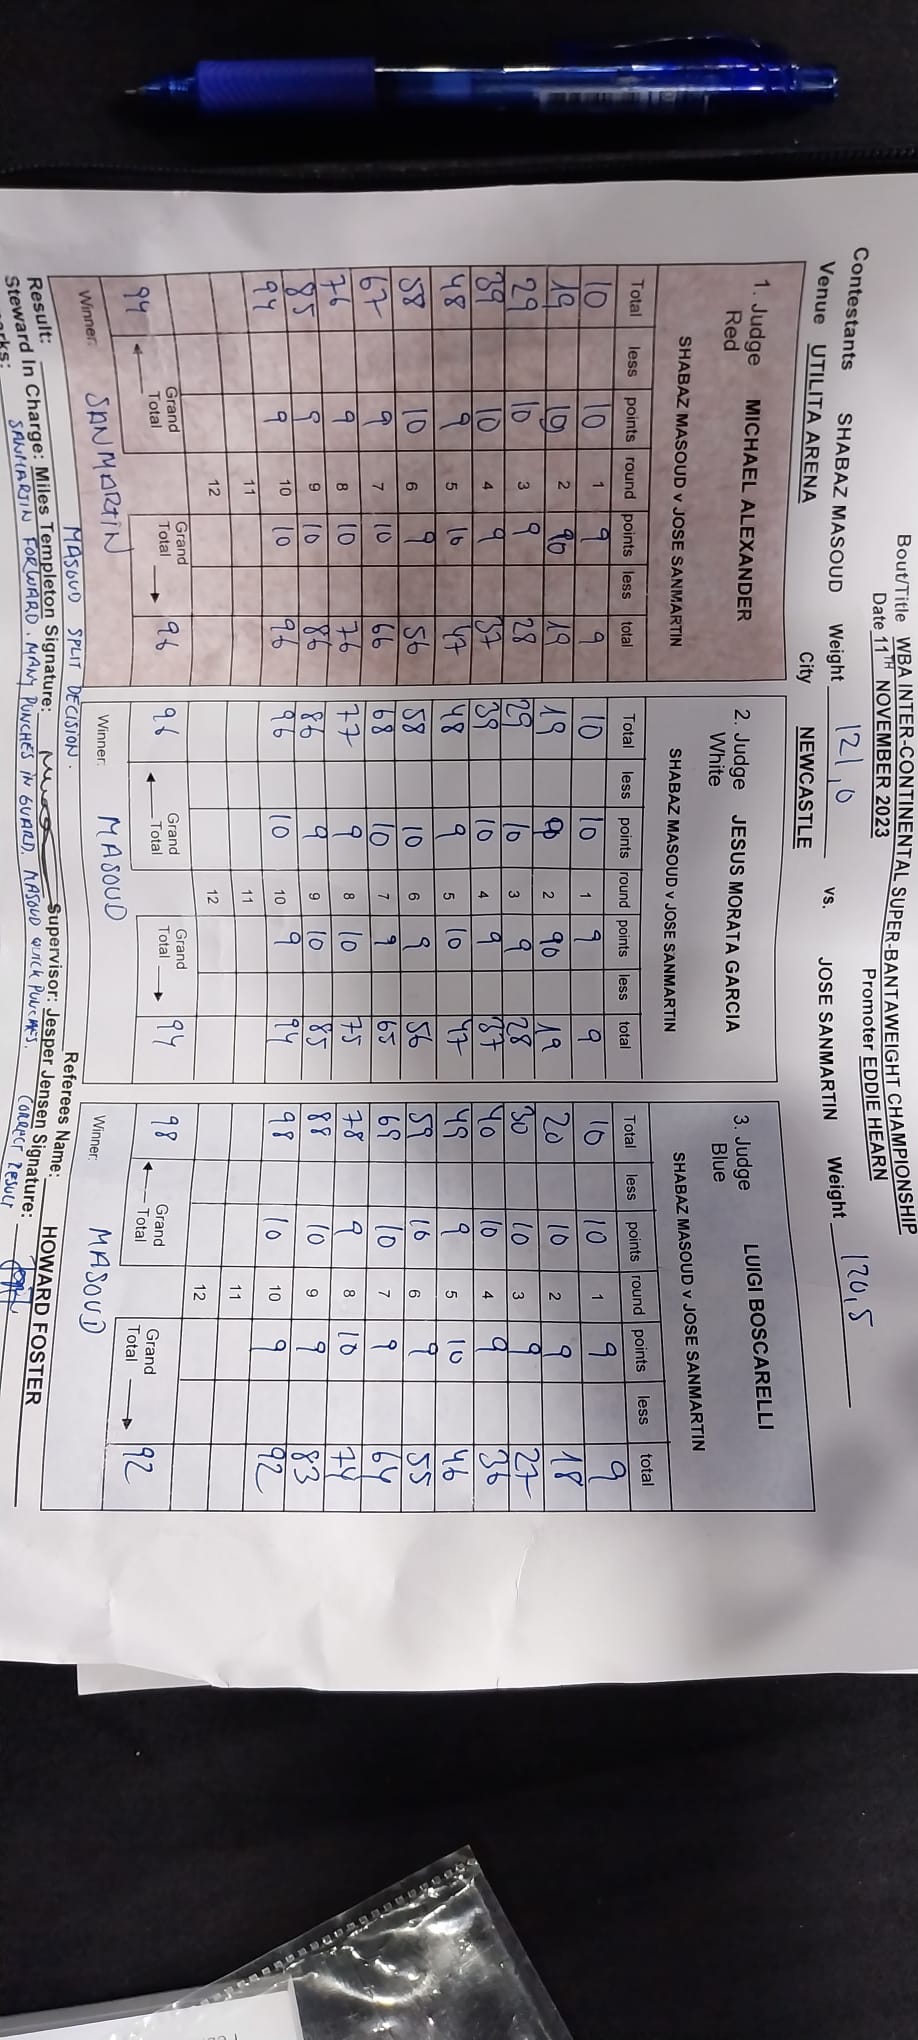 Bout/Title WBA INTER-CONTINENTAL SUPER-BANTAWEIGHT CHAMPIONSHIP
Date 11TH NOVEMBER 2023 Promoter EDDIE HEARN
Contestants SHABAZ MASOUD Weight 121,0 vs. JOSE SANMARTIN Weight 120,5
Venue UTILITA ARENA City NEWCASTLE
1. Judge MICHAEL ALEXANDER
Red
SHABAZ MASOUD v JOSE SANMARTIN
Total less points round points less total
10 10 1 9 9
19 2 19
29 10 3 9 28
39 10 4 9 37
48 9 5 10 47
58 10 6 9 56
67 9 7 10 66
76 9 8 10 76
85 9 9 10 86
94 9 10 10 96
11
12
Grand Total Grand Total
94 96
Winner: SANMARTIN
2. Judge JESUS MORATA GARCIA
White
SHABAZ MASOUD v JOSE SANMARTIN
Total less points round points less total
10 10 1 9 9
19 2 19
29 10 3 9 28
39 10 4 9 37
48 9 5 10 47
58 10 6 9 56
68 10 7 9 65
77 9 8 10 75
86 9 9 10 85
96 10 10 9 94
11
12
Grand Total Grand Total
96 94
Winner: MASOUD
3. Judge LUIGI BOSCARELLI
Blue
SHABAZ MASOUD v JOSE SANMARTIN
Total less points round points less total
10 10 1 9 9
20 10 2 9 18
30 10 3 9 27
40 10 4 9 36
49 9 5 10 46
59 10 6 9 55
69 10 7 9 64
78 9 8 10 74
88 10 9 9 83
98 10 10 9 92
11
12
Grand Total Grand Total
98 92
Winner: MASOUD
Result: MASOUD SPLIT DECISION. Referees Name: HOWARD FOSTER
Steward In Charge: Miles Templeton Signature: Supervisor: Jesper Jensen Signature:
SANMARTIN FORWARD. MANY PUNCHES IN GUARD. MASOUD QUICK PUNCHES. CORRECT RESULT